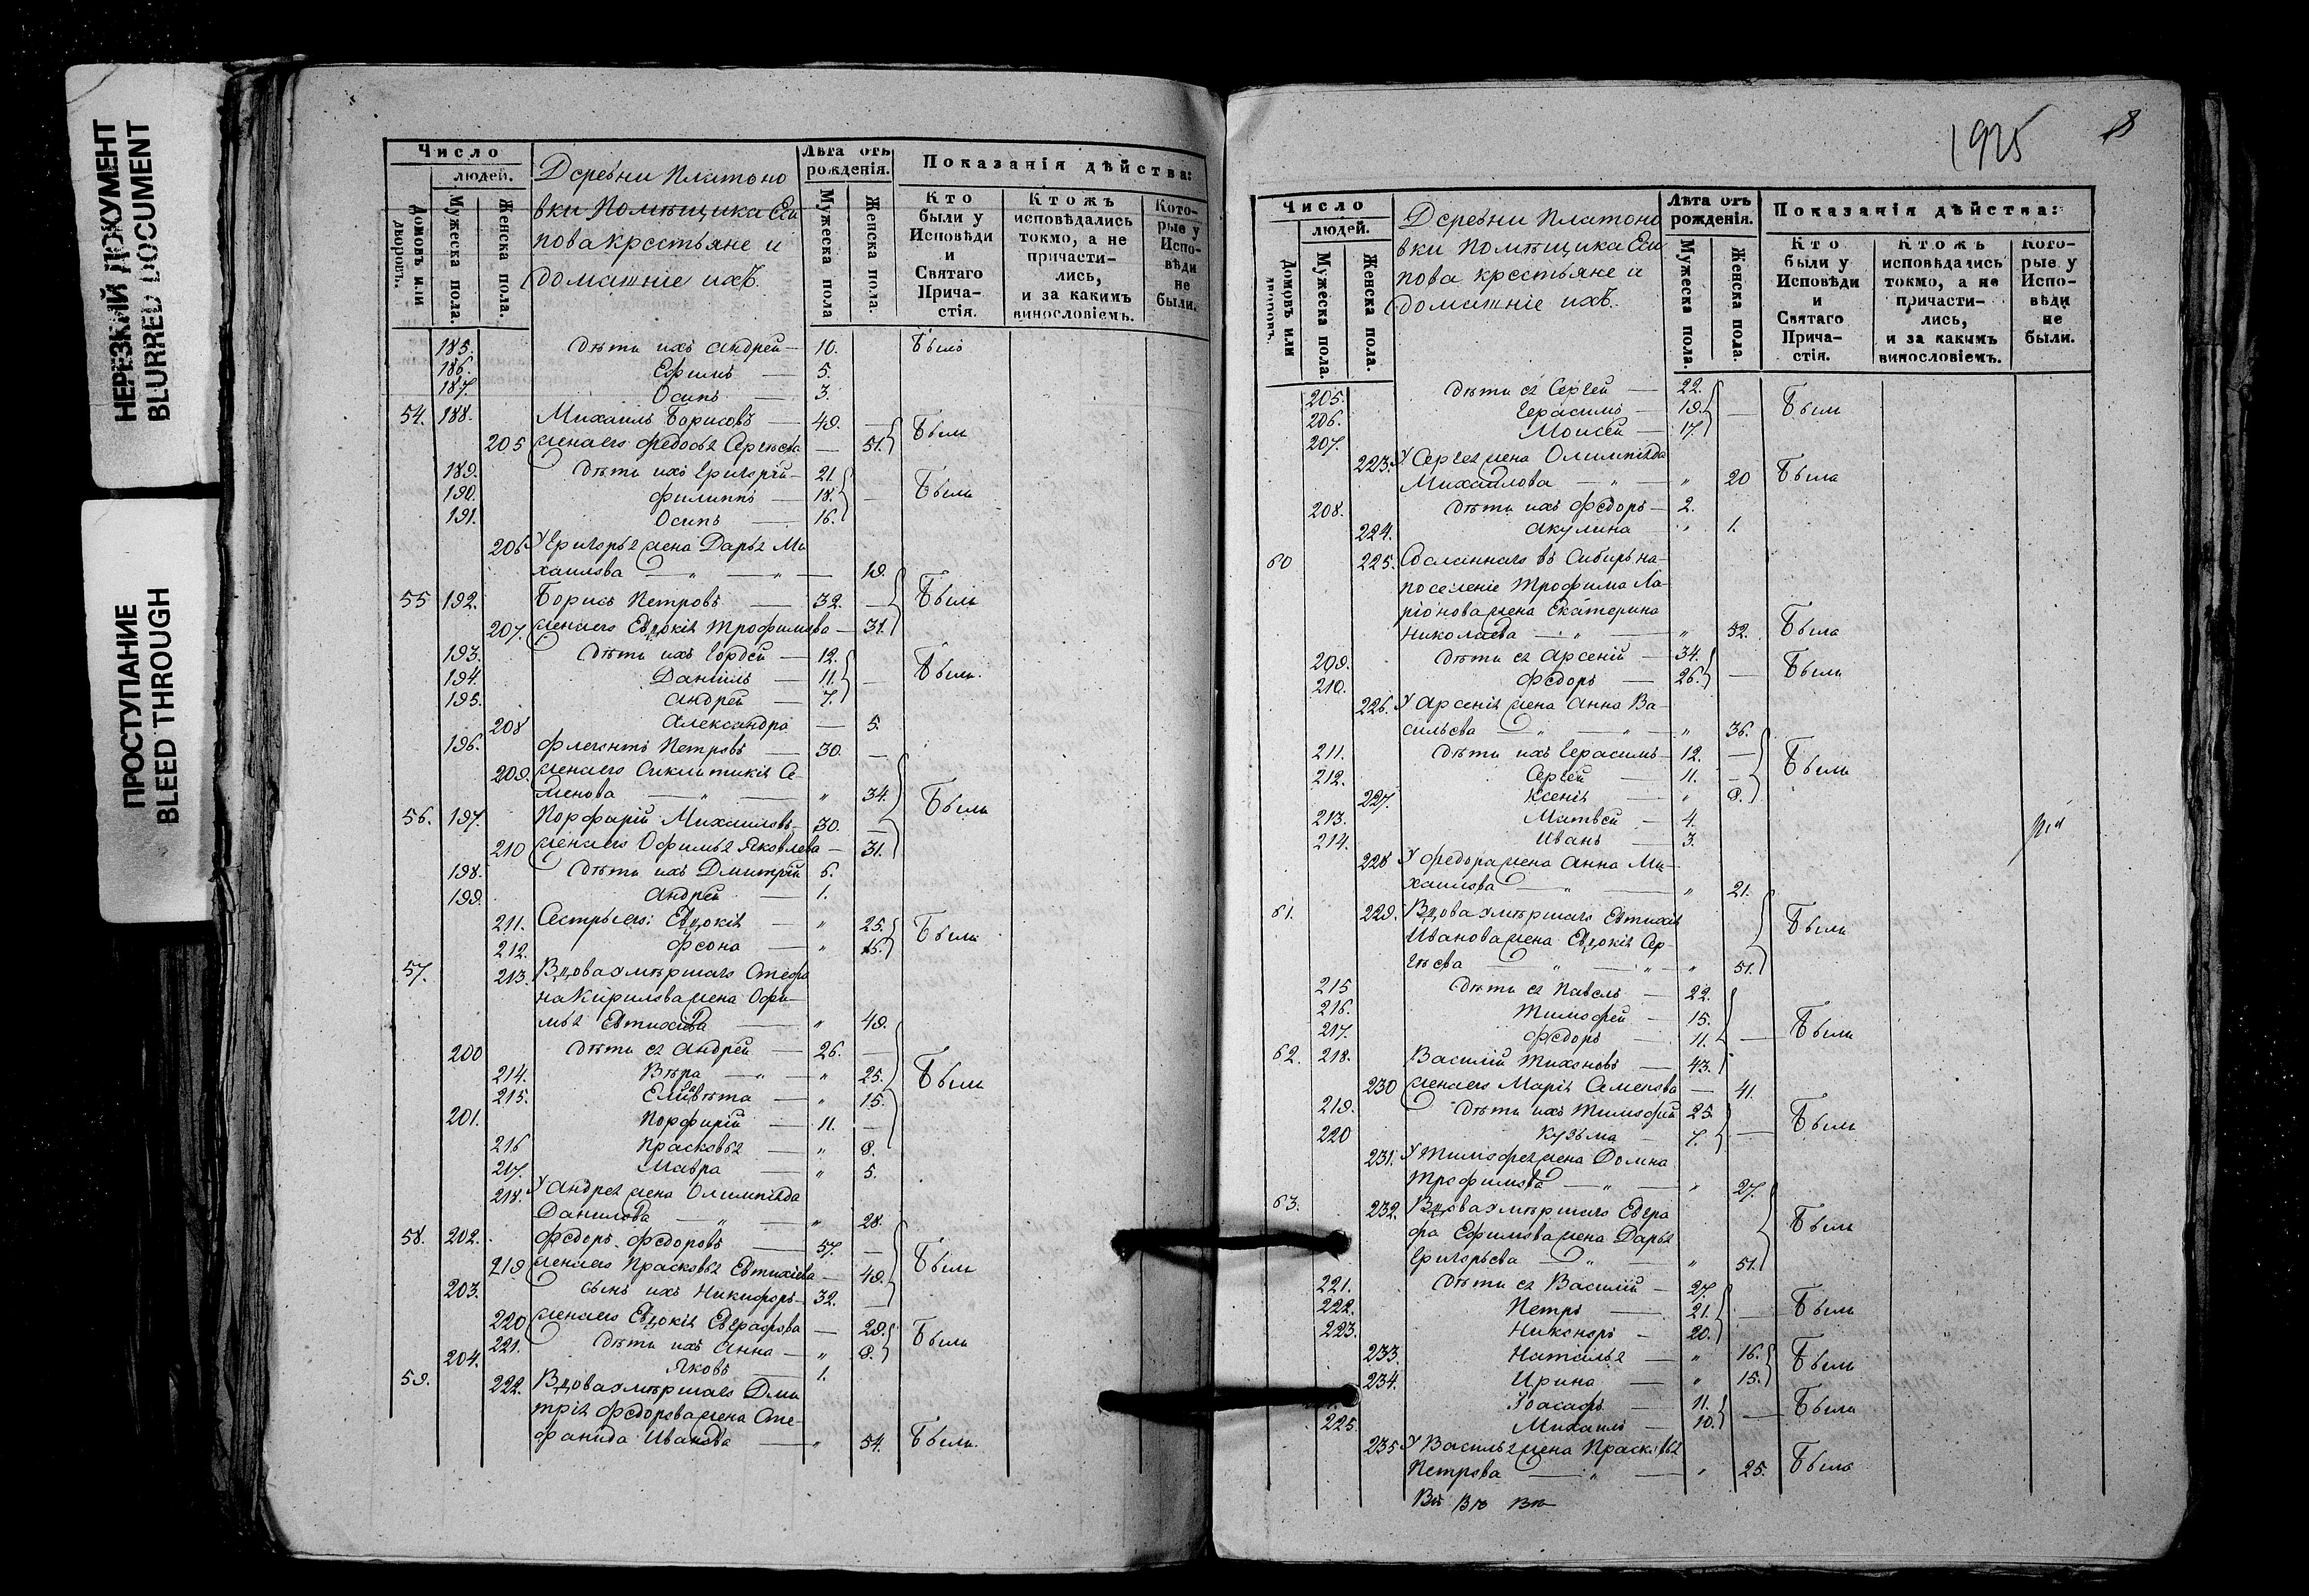 НЕРЕЗКИЙ ДОКУМЕНТ
BLURRED DOCUMENT
ПРОСТУПАНИЕ
BLEED THROUGH
Число
людей.
Домовъ или дворовъ.
Мужеска пола.
Женска пола.
Деревни Платоно
вки Помѣщика Еси
пова крестьяне и
домашніе ихъ.
Лѣта отъ рожденія.
Мужеска пола
Женска пола.
Показанія дѣйства:
Кто были у Исповѣди и Святаго Прича- стія.
Ктожъ исповѣдались токмо, а не причасти- лись, и за какимъ винословіемъ.
Кото- рые у Испо- вѣди не были.
185. Дѣти ихъ Андрей — 10. Былъ
186. Ефимъ — 5.
187. Осипъ — 3.
54. 188. Михаилъ Борисовъ — 49. —
205 жена его Федосья Сергѣева — 51. Были
189. Дѣти ихъ Григорій — 21.
190. Филиппъ — 18. — Были
191. Осипъ — 16.
206 У Григорья жена Дарья Ми
хаилова — " — " — 19.
55 192. Борисъ Петровъ — 32. — Были
207. жена его Евдокія Трофимова — 31.
193. Дѣти ихъ Гордей — 12.
194. Даніилъ — 11. — Были.
195. Андрей — 7.
208 Александра — 5.
196. Флегонтъ Петровъ — 30. —
209. жена его Синклитикія Се-
менова — " — " 34. Были
56. 197. Порфирій Михаиловъ — 30. —
210 жена его Офимья Яковлева — 31.
198. Дѣти ихъ Дмитрій 6.
199. Андрей — 1.
211. Сестры его: Евдокія — " 25. Были
212. Фсона — " 15.
57. 213. Вдова умѣршаго Стефа
на Кирилова жена Офи-
мья Евтихіева — " 49.
200 Дѣти ея Андрей — 26. —
214. Вѣра — " — " 25. Были
215. Елисавѣта — " 15.
201. Порфирій — 11. —
216 Прасковья — " 8.
217. Мавра — " 5.
218. У Андрея жена Олимпіада
Данилова — " — " 28.
58. 202. Федоръ Федоровъ — 57. —
219 жена его Прасковья Евтихіева — 49. Были
203. Сынъ ихъ Никифоръ — 32. —
220 жена его Евдокія Евграфова — 29. Были
221. Дѣти ихъ Анна — " 8.
204. Яковъ — 1.
59. 222. Вдова умѣршаго Дми
трія Федорова жена Сте-
фанида Иванова — " 54. Была.
1925
8
Число
людей.
Домовъ или дворовъ.
Мужеска пола.
Женска пола.
Деревни Платоно
вки Помѣщика Еси
пова крестьяне и
домашніе ихъ.
Лѣта отъ рожденія.
Мужеска пола.
Женска пола.
Показанія дѣйства:
Кто были у Исповѣди и Святаго Прича- стія.
Ктожъ исповѣдались токмо, а не причасти- лись, и за какимъ винословіемъ.
Кото- рые у Испо- вѣди не были.
205. Дѣти ея Сергей — 22.
206. Герасимъ — 19. — Были
207. Моисей — 17.
223. У Сергея жена Олимпіада
Михайлова — " — " 20 Была
208. Дѣти ихъ Федоръ — 2.
224. Акулина — " 1.
60 225. Сосланнаго въ Сибирь на-
поселеніе Трофима Ла-
ріонова жена Екатерина
Николаева — " — " 52. Была
209. Дѣти ея Арсеній — 34.
210. Федоръ — 26. — Были
226. У Арсенія жена Анна Ва-
сильева — " — " — " 36.
211. Дѣти ихъ Герасимъ — 12. —
212. Сергій — 11. — Были
227. Ксенія — " 8.
213. Матвей — 4.
214. Иванъ — 3.
228 У Федора жена Анна Ми-
хаилова — " — " 21.
61. 229. Вдова умѣршаго Евтихія
Иванова жена Евдокія Сер-
гѣева — " — " — " 51. Были
215 Дѣти ея Павелъ — 22.
216. Тимофей — 15.
217. Федоръ — 11. — Были
62. 218. Василій Тихоновъ — 43.
230 жена его Марія Семенова — 41.
219. Дѣти ихъ Тимофей 25. Были
220 Кузьма — 7. —
231. У Тимофея жена Домна
Трофимова — " — " 27.
63. 232. Вдова умѣршаго Евгра
фа Ефимова жена Дарья
Григорьева — " — " 51. Были
221. Дѣти ея Василій — 27.
222. Петръ — 21. — Были
223. Никоноръ — 20.
233. Наталья — " 16. Были
234. Ирина — " 15.
Іоасафъ — 11. — Были
225. Михаилъ — 10.
235 У Василья жена Прасковья
Петрова — " — " 25. Была